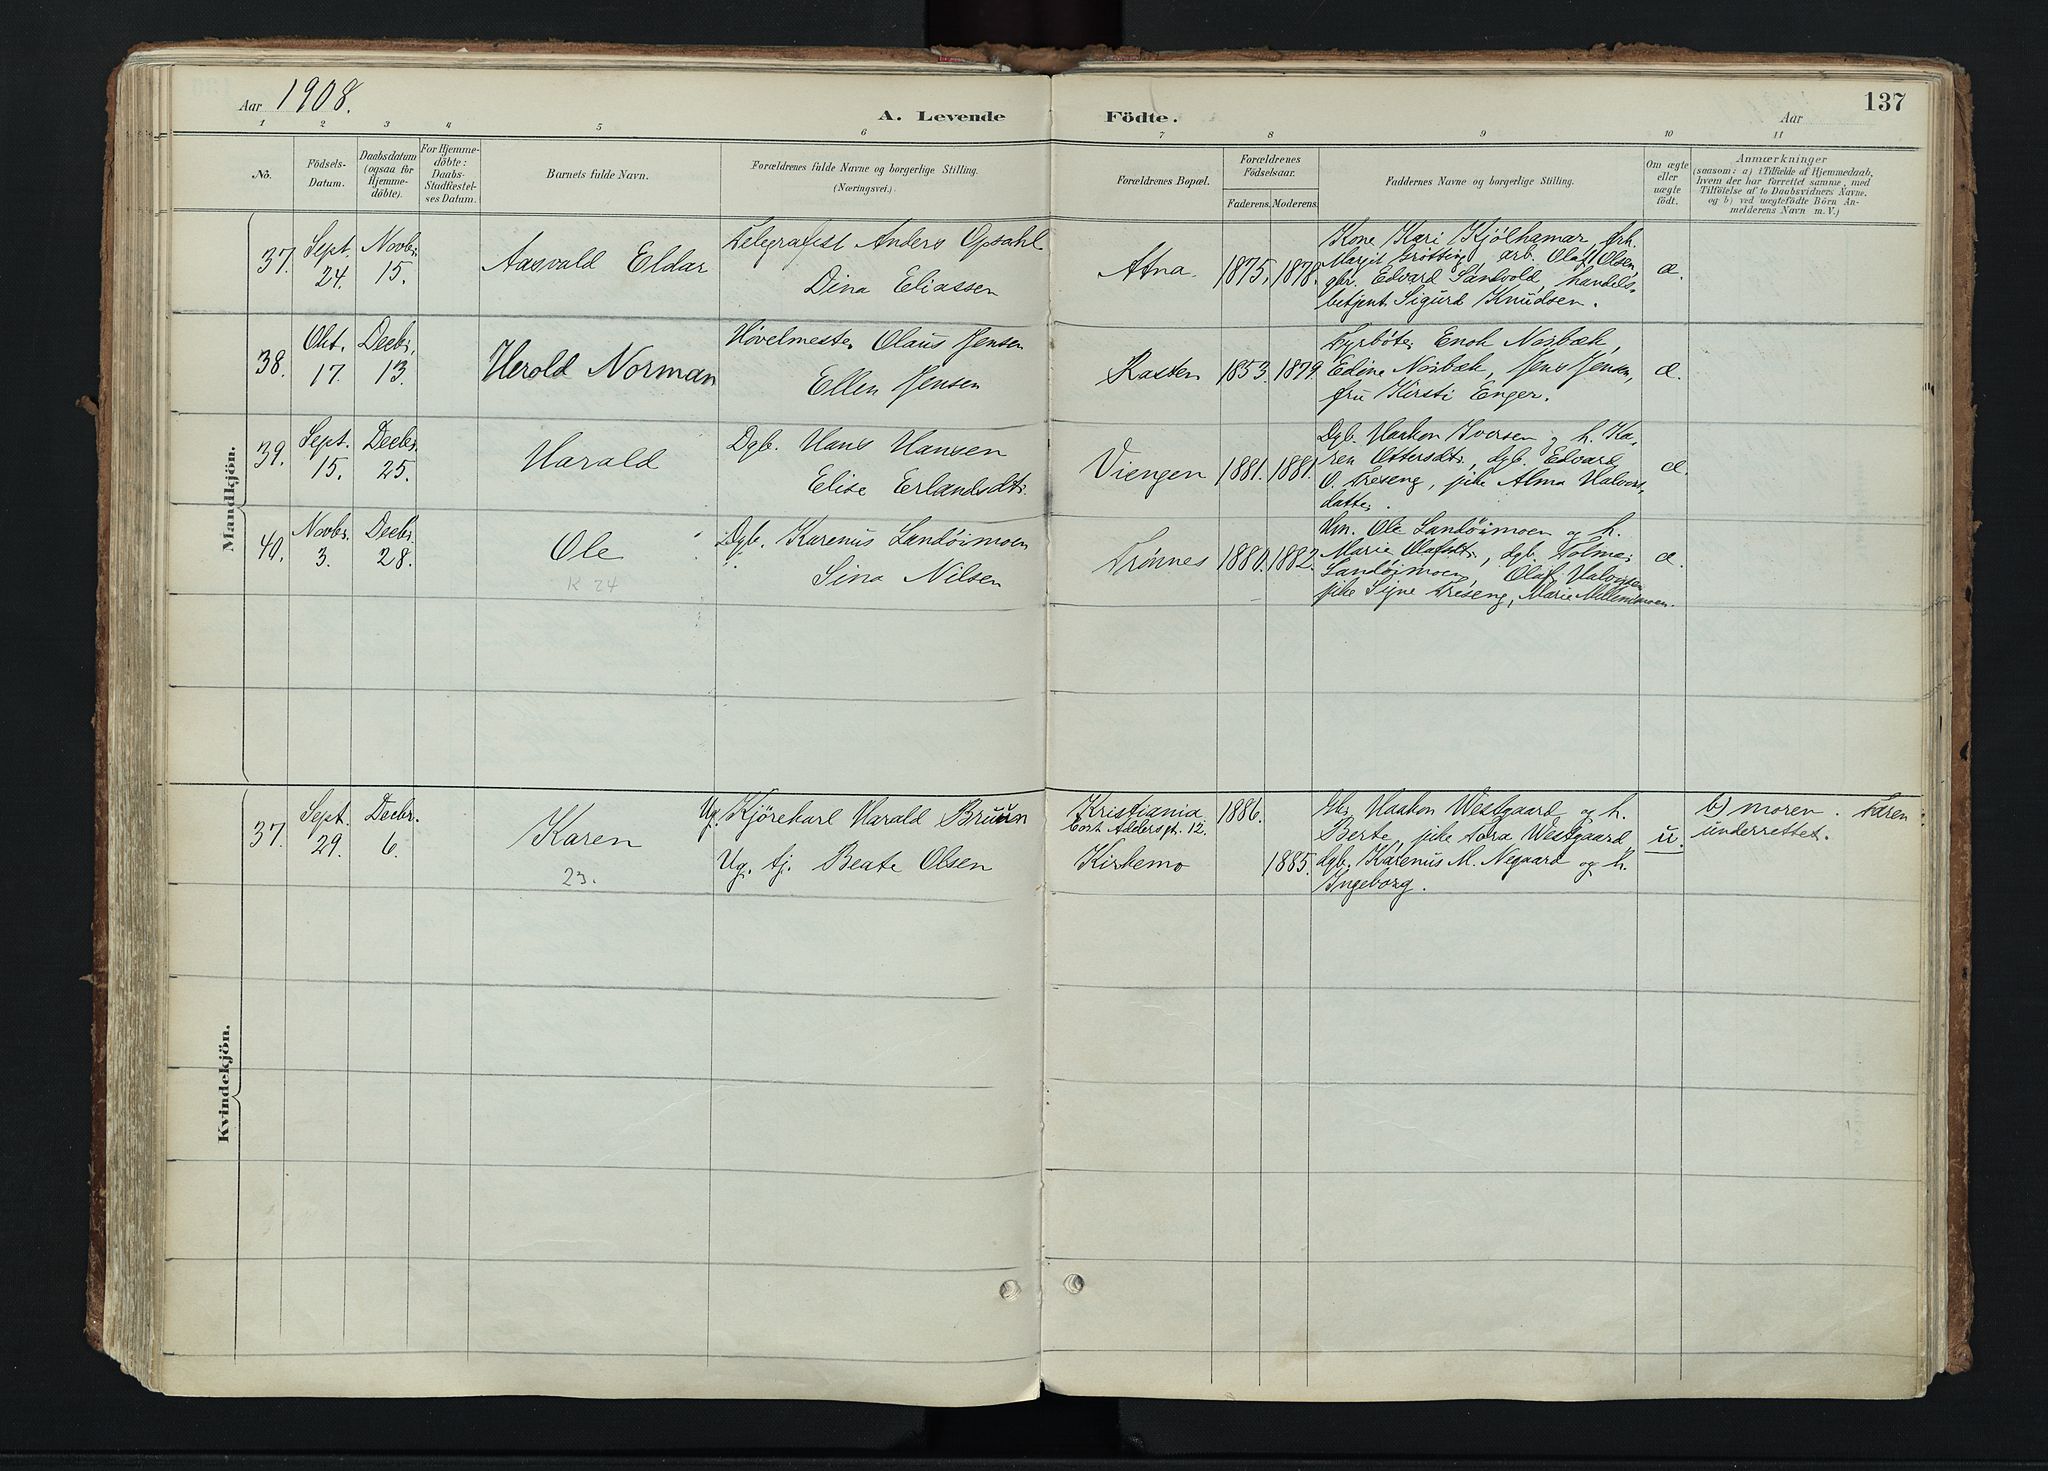 Aar 1908.
A. Levende Födte.
Aar
137
1 2 3 4 5 6 7 8 9 10 11
No.
Födsels-Datum.
Daabsdatum (ogsaa for Hjemme-döbte).
For Hjemme-döbte: Daabs-Stadfæstel-ses Datum.
Barnets fulde Navn.
Forældrenes fulde Navne og borgerlige Stilling. (Næringsvei.)
Forældrenes Bopæl.
Forældrenes Födselsaar.
Faderens. Moderens.
Faddernes Navne og borgerlige Stilling.
Om ægte eller uægte födt.
Anmærkninger
(saasom: a) i Tilfælde af Hjemmedaab, hvem der har forrettet samme, med Tilföielse af to Daabsvidners Navne, og b) ved uægtefödte Börn Anmelderens Navn m. V.)
Mandkjön.
37. Sept. 24. Novbr. 15. Aasvald Eldar
Telegrafist Anders Opsahl
Dina Eliassen
Atna. 1875. 1878.
Kone Kari Kjølhamar, frk.
Marjit Grötting, arb. Olaf Olsen,
gbr. Edvard Sandvold, handels-
betjent Sigurd Knudsen.
æ.
38. Okt. 17. Decbr. 13. Herold Norman
Høvelmester Olaus Jensen
Ellen Jensen
Kasten 1853. 1879.
Fyrbøter Enok Norbæk,
Edine Norbæk, Jens Jensen,
fru Kirsti Enger.
æ.
39. Sept. 15. Decbr. 25. Harald
Dgb. Hans Hansen
Elise Erlandsdtr.
Viengen 1881. 1881.
Dgb. Haakon Iversen og h. Ka-
ren Ottersdtr, dgb. Edvard
O. Treseng, pike Alma Halvors-
datter.
æ.
40. Novbr. 3. Decbr. 28. Ole
K 24
Dgb. Karenus Landöimoen
Sina Nilsen
Trönnes 1880. 1882.
Hm. Ole Landöimoen og h.
Marie Olafsdtr, dgb. Tolmer
Landöimoen, Olaf Halvorsen
pike Signe Treseng, Marie Mellemmoen.
æ.
Kvindekjön.
37. Sept. 29. Decbr. 6. Karen
23.
Ug. Kjörekarl Harald Bruun
Ug. tj. Beate Olsen
Kristiania
Cort Adelers gt. 12.
Kirkemo
1886. 1885.
Gbr Haakon Westgaard og h.
Berte, pike Tora Westgaard,
dgb. Karenus M. Negaard og h.
Ingeborg.
u.
b) moren. Faren
underrettet.